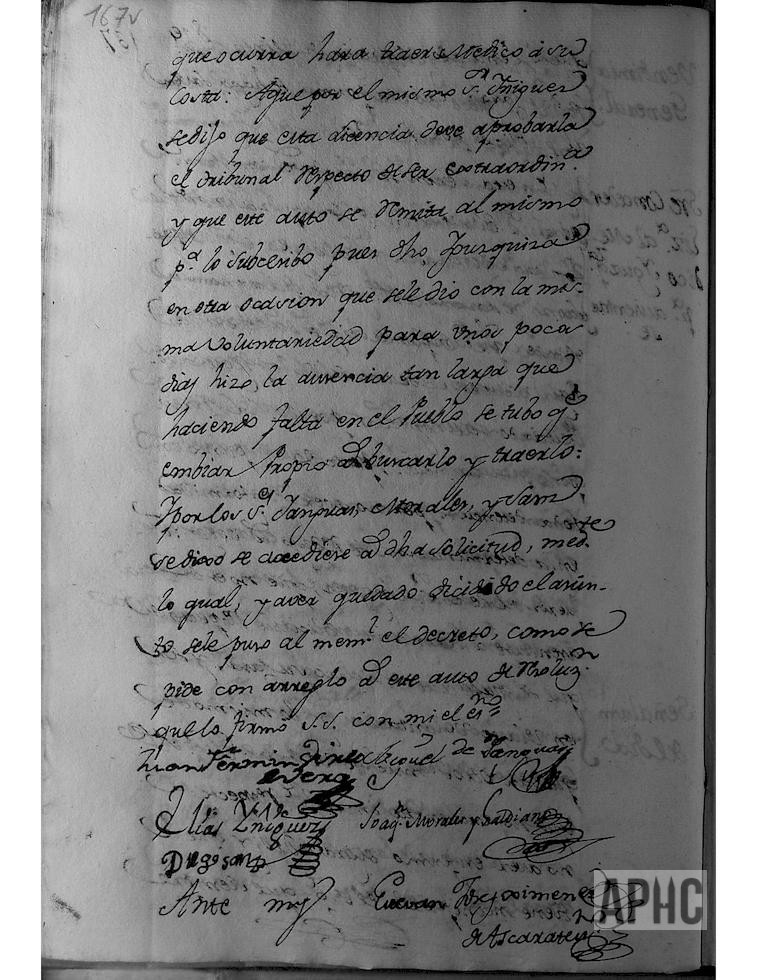 167v
que ocurra hara traer Medico a su
Costa: A que por el mismo Sr. Yñiguez
se dijo que esta licencia deve aprobarla
el tribunal respecto de ser extraordin.a
y que este auto se remita al mismo
p.a lo subcesibo pues dho Yzusquiza
en otra ocasion que se le dio con la mis-
ma voluntariedad para unos pocos
dias hizo la ausencia tan larga que
haciendo falta en el Pueblo se tubo q.e
embiar Propio a buscarlo y traerlo:
Y por los S.es Sanjuan, Morales, y Sanz
se dixo se accediese a dha solicitud, med.te
lo qual, y aver quedado dicidido el asun-
to se le puso al mem.l el decreto, como se
pide con arreglo a este auto de resoluz.on
que lo firmó S.S. con mi el es.no
Juan Fermin Diez Miguel de Sanjuan
Elias Yñiguez Joaq.n Morales y
Diego Sanz
Ante my Estevan Ximenez
de Ascarate
APHC